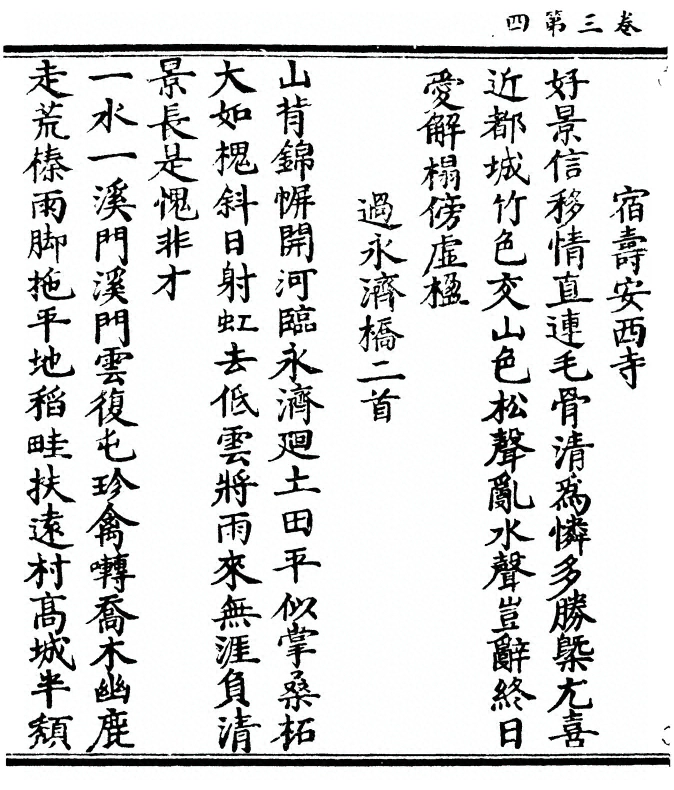 卷三第四
宿壽安西寺
好景信移情直連毛骨清爲憐多勝槩尤喜
近都城竹色交山色松聲亂水聲豈辭終日
愛解榻傍虛楹
過永濟橋二首
山背錦幈開河臨永濟廻土田平似掌桑柘
大如槐斜日射虹去低雲將雨來無涯負清
景長是愧非才
一水一溪門溪門雲復屯珍禽囀喬木幽鹿
走荒榛雨脚拖平地稻畦扶遠村髙城半頹